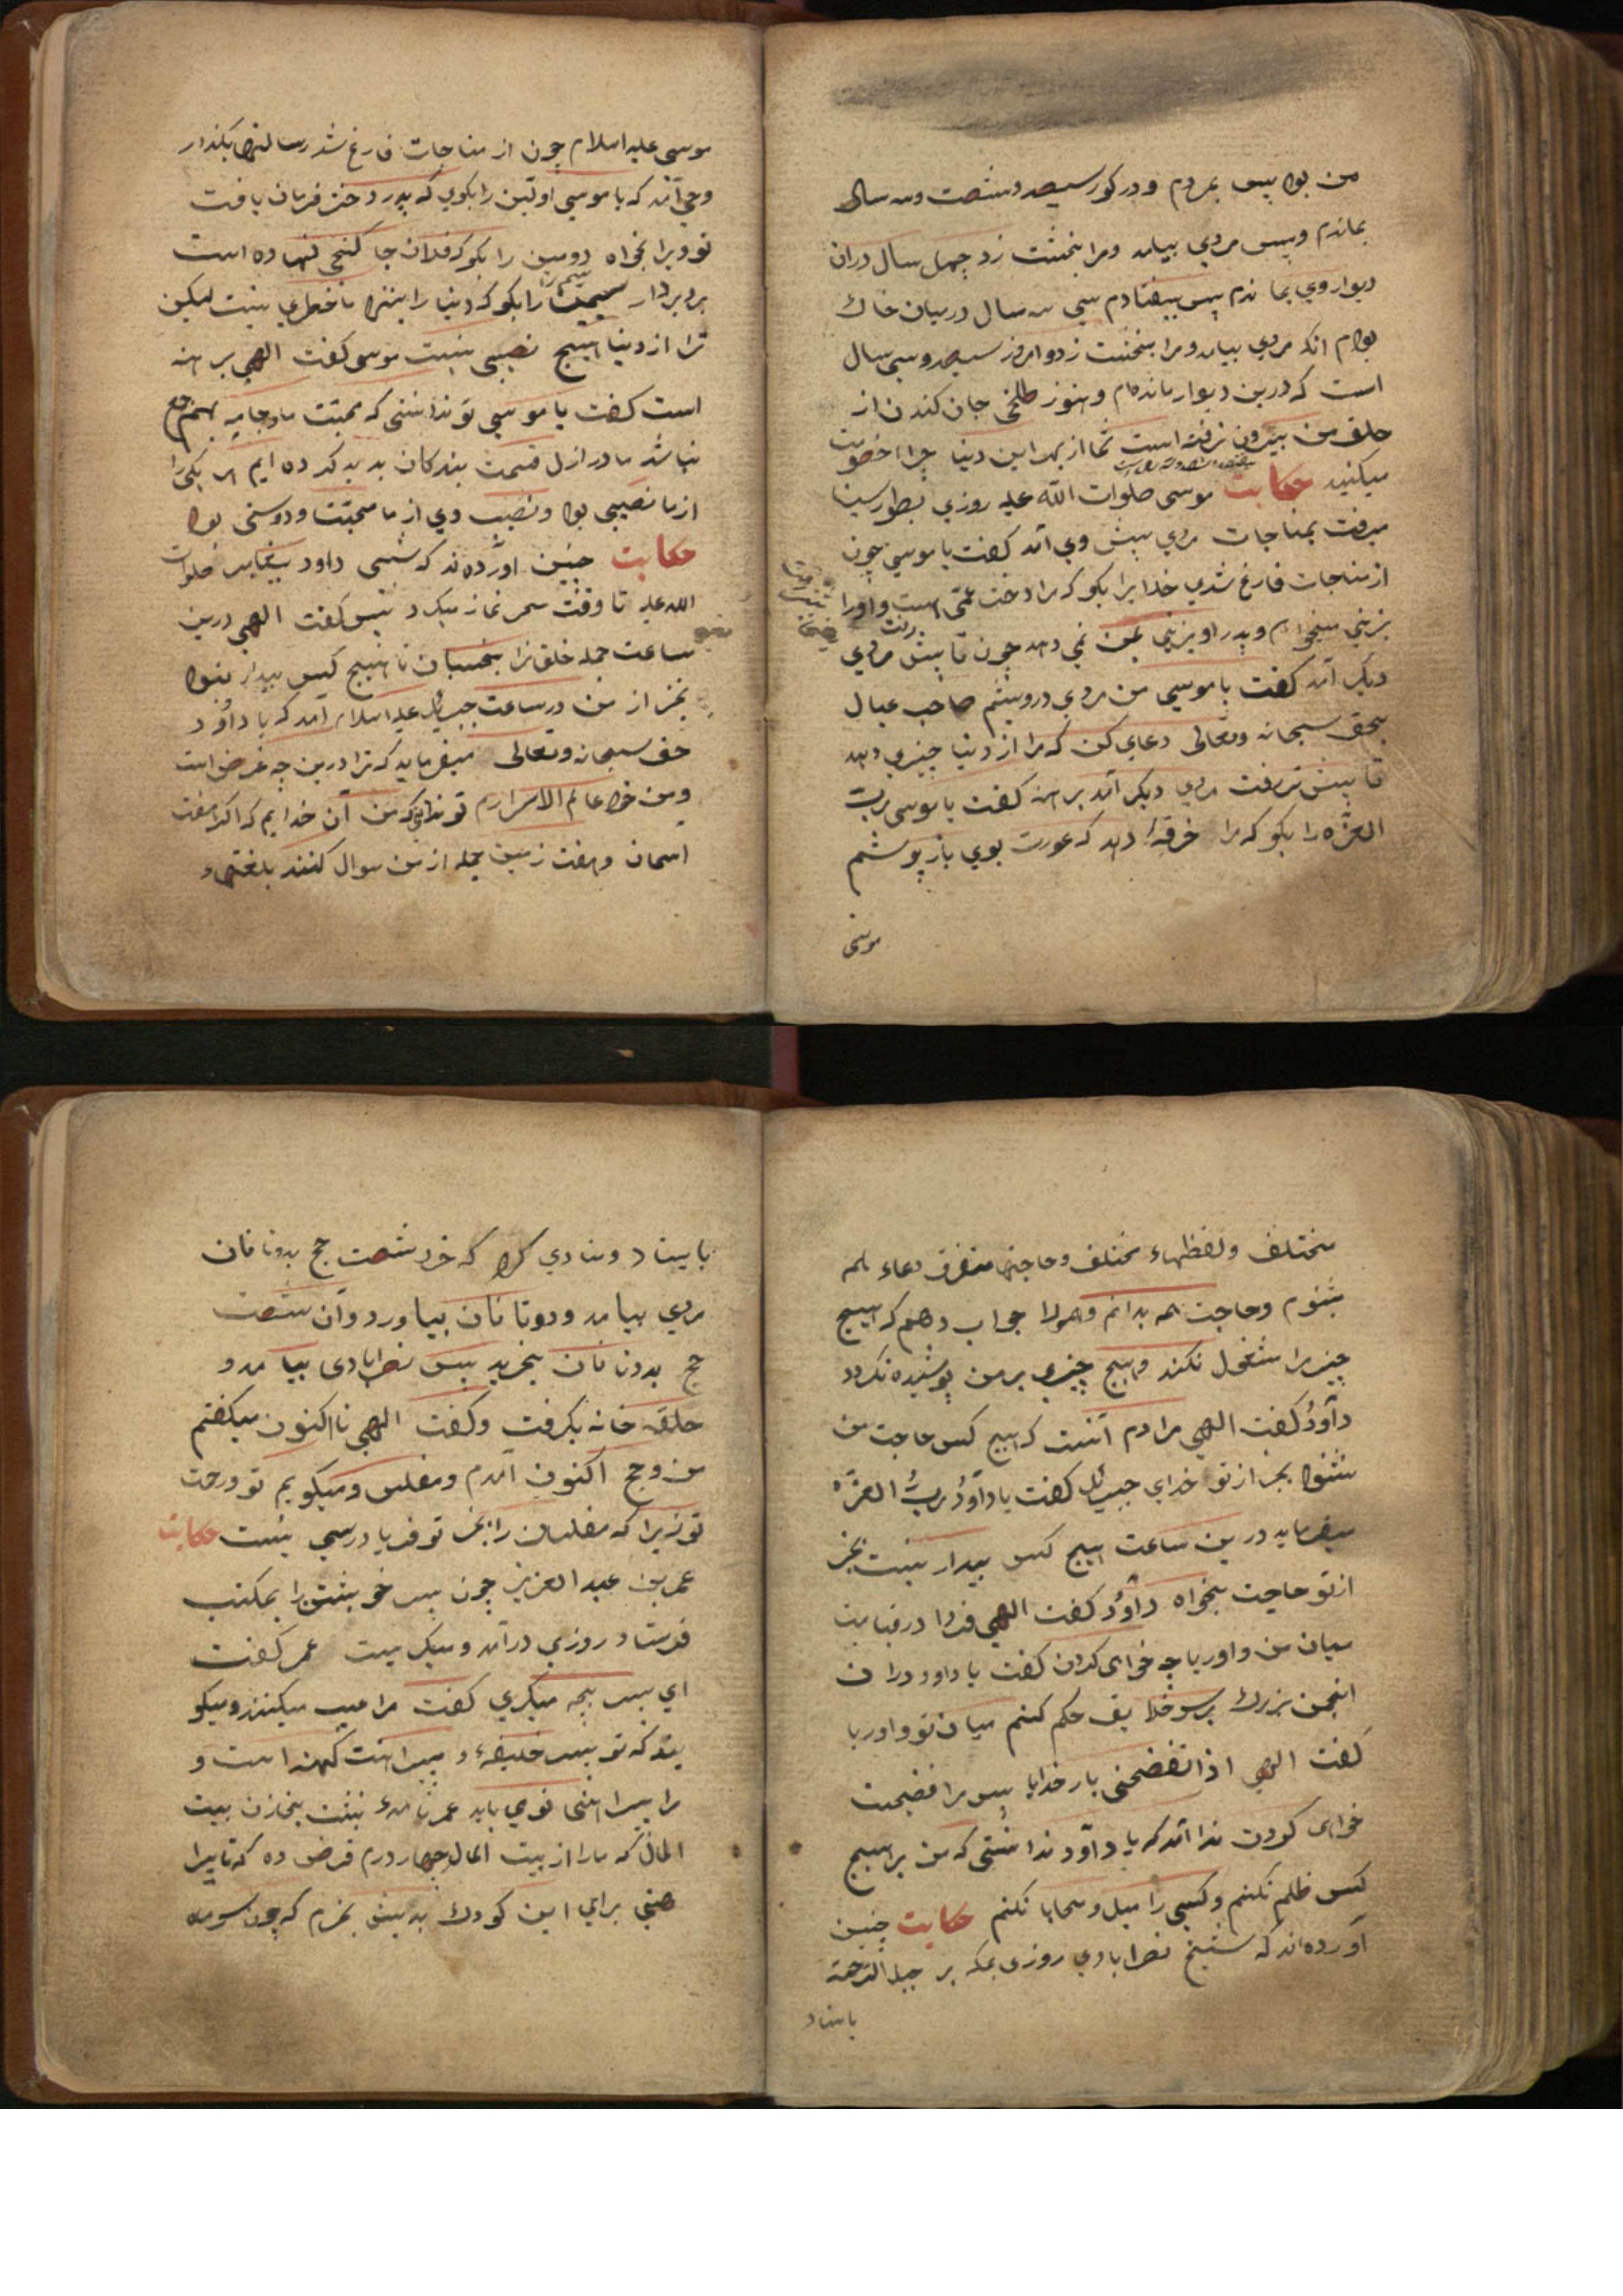 من بود پس بمردم و در کور سیصد و شصت و سه سال
بماندم و پس مردی بیامد و مرا بخشت زد چهل سال در ان
دیوار وی بماندم پس بیفتادم سی سه سال در میان خاک
بودم انکه مردی بیامد و مرا بخشت زد و امروز سیصد و سی سال
است که درین دیوار مانده‌ام و هنوز طلخی جان کندن از
حلق من بیرون نرفته است شما از بهر این دنیا چرا خصومت
میکنید حکایت موسی صلوات الله علیه روزی بطور سینا
میرفت بمناجات مردی پیش وی آمد کفت یا موسی چون
از مناجات فارغ شدی خدایرا بکو که مرا دخت عمّی است و اورا
بزنی میخواهم و پدر او بزنی بمن نمی دهد چون تا پیش رفت مردی
دیکر آمد کفت یا موسی من مردی درویشم صاحب عیال
بحق سبحانه و تعالی دعای کن که مرا از دنیا چیزی دهد
تا پیش تر رفت مردی دیکر آمد برهنه کفت یا موسی ربّ
العزّه را بکو که مرا خرقهٔ دهد که عورت بوی باز پوشم
موسی
موسی علیه السلام چون از مناجات فارغ شد رسالتها بکذار
وحی آمد که یا موسی اولین را بکوی که پدر دختر فرمان یافت
تو ویرا بخواه دومین را بکو که فلان جا کنجی نهاده است
برو بردار سیم را بکو که دنیا را بنزد ما خطری نیست لیکن
ترا از دنیا هیچ نصیبی نیست موسی کفت الهی برهنه
است کفت یا موسی تو ندانستی که محبّت ما و جامه بهم جمع
نباشد ما در ازل قسمت بندکان بدید کرده ایم هر یکی را
از ما نصیبی بود و نصیب وی از ما محبّت و دوستی بود
حکایت چنین آورده‌ند که شبی داود پیغامبر صلوات
الله علیه تا وقت سحر نماز میکرد پس کفت الهی درین
ساعت جمله خلق ترا بخسبان تا هیچ کس بیدار نبود
بجز از من در ساعت جبریل علیه السلام آمد که یا داوُد
حق سبحانه و تعالی میفرماید که ترا درین چه غرض است
و من خود عالم الاسرارم تو ندانی که من آن خدایم که اکر هفت
اسمان و هفت زمین جمله از من سوال کنند بلغتهاء
مختلف و لفظهاء مختلف و حاجتهاء متفرق دعاء همه
بشنوم و حاجت همه بدانم و همه را جواب دهم که هیچ
چیز مرا مشغول نکند و هیچ چیزی بر من پوشیده نکردد
داوُد کفت الهی مرادم آنست که هیچ کس حاجت من
نشنود بجز از تو خدای جبریل کفت یا داوُد ربُّ العزّة
میفرماید درین ساعت هیچ کس بیدار نیست بجز
از تو حاجت بخواه داوُد کفت الهی فردا در قیامت
میان من و اوریا چه خواهی کردن کفت یا داود در ان
انجمن بزرک بر سر خلایق حکم کنم میان تو و اوریا
کفت الهی اذا تفضحنی بار خدایا پس مرا فضیحت
خواهی کردن ندا آمد که یا داود ندانستی که من بر هیچ
کس ظلم نکنم و کسی را میل و محابا نکنم حکایت چنین
آورده‌اند که شیخ نصرابادی روزی بمکه بر جبل الرّحمة
بایستاد
بایستاد و منادی کرد که خرد شصت حج بدوتا نان
مردی بیامد و دوتا نان بیاورد و آن شصت
حج بدوتا نان بخرید پس نصرابادی بیامد و
حلقه خانه بکرفت و کفت الهی تا اکنون میکفتم
من و حج اکنون آمدم و مفلس و میکویم تو و رحمت
تو زیرا که مفلسان را بجز تو فریادرسی نیست حکایت
عمر بن عبد العزیز چون پسر خویشتن را بمکتب
فرستاد روزی درآمد و میکریست عمر کفت
ای پسر بچه میکری کفت مرا عیب میکنند و میکو
یند که تو پسر خلیفهٔ و پیراهنت کهنه است و
مرا پیراهنی نوی باید عمر نامهٔ نبشت بخازن بیت
المال که مارا از بیت المال چهار درم قرض ده که تا پیرا
هنی برای این کودک بدیش بخرم که چون سر ماه